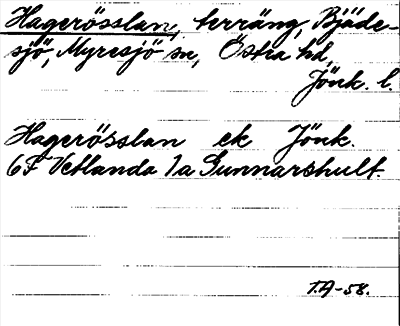 Hagerösslan, terräng, Bjäde-
sjö, Myresjö sn, Östra hd,
Jönk. l.
Hagerösslan ek Jönk.
6F Vetlanda 1a Gunnarshult.
T.A-58.